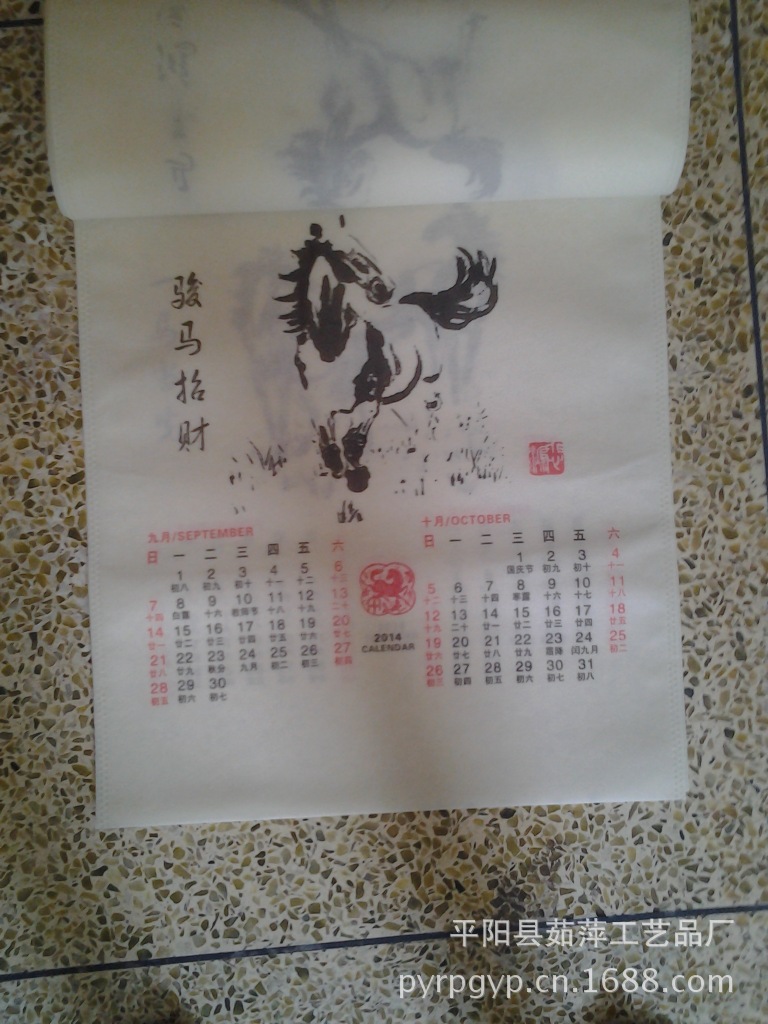 骏马招财
九月/SEPTEMBER
日 一 二 三 四 五 六
1 2 3 4 5 6
初八 初九 初十 十一 十二 十三
7 8 9 10 11 12 13
十四 白露 十六 教师节 十八 十九 二十
14 15 16 17 18 19 20
廿一 廿二 廿三 廿四 廿五 廿六 廿七
21 22 23 24 25 26 27
廿八 廿九 秋分 九月 初二 初三 初四
28 29 30
初五 初六 初七
2014
CALENDAR
十月/OCTOBER
日 一 二 三 四 五 六
1 2 3 4
国庆节 初九 初十 十一
5 6 7 8 9 10 11
十二 十三 十四 寒露 十六 十七 十八
12 13 14 15 16 17 18
十九 二十 廿一 廿二 廿三 廿四 廿五
19 20 21 22 23 24 25
廿六 廿七 廿八 廿九 霜降 闰九月 初二
26 27 28 29 30 31
初三 初四 初五 初六 初七 初八
平阳县茹萍工艺品厂
pyrpgyp.cn.1688.com